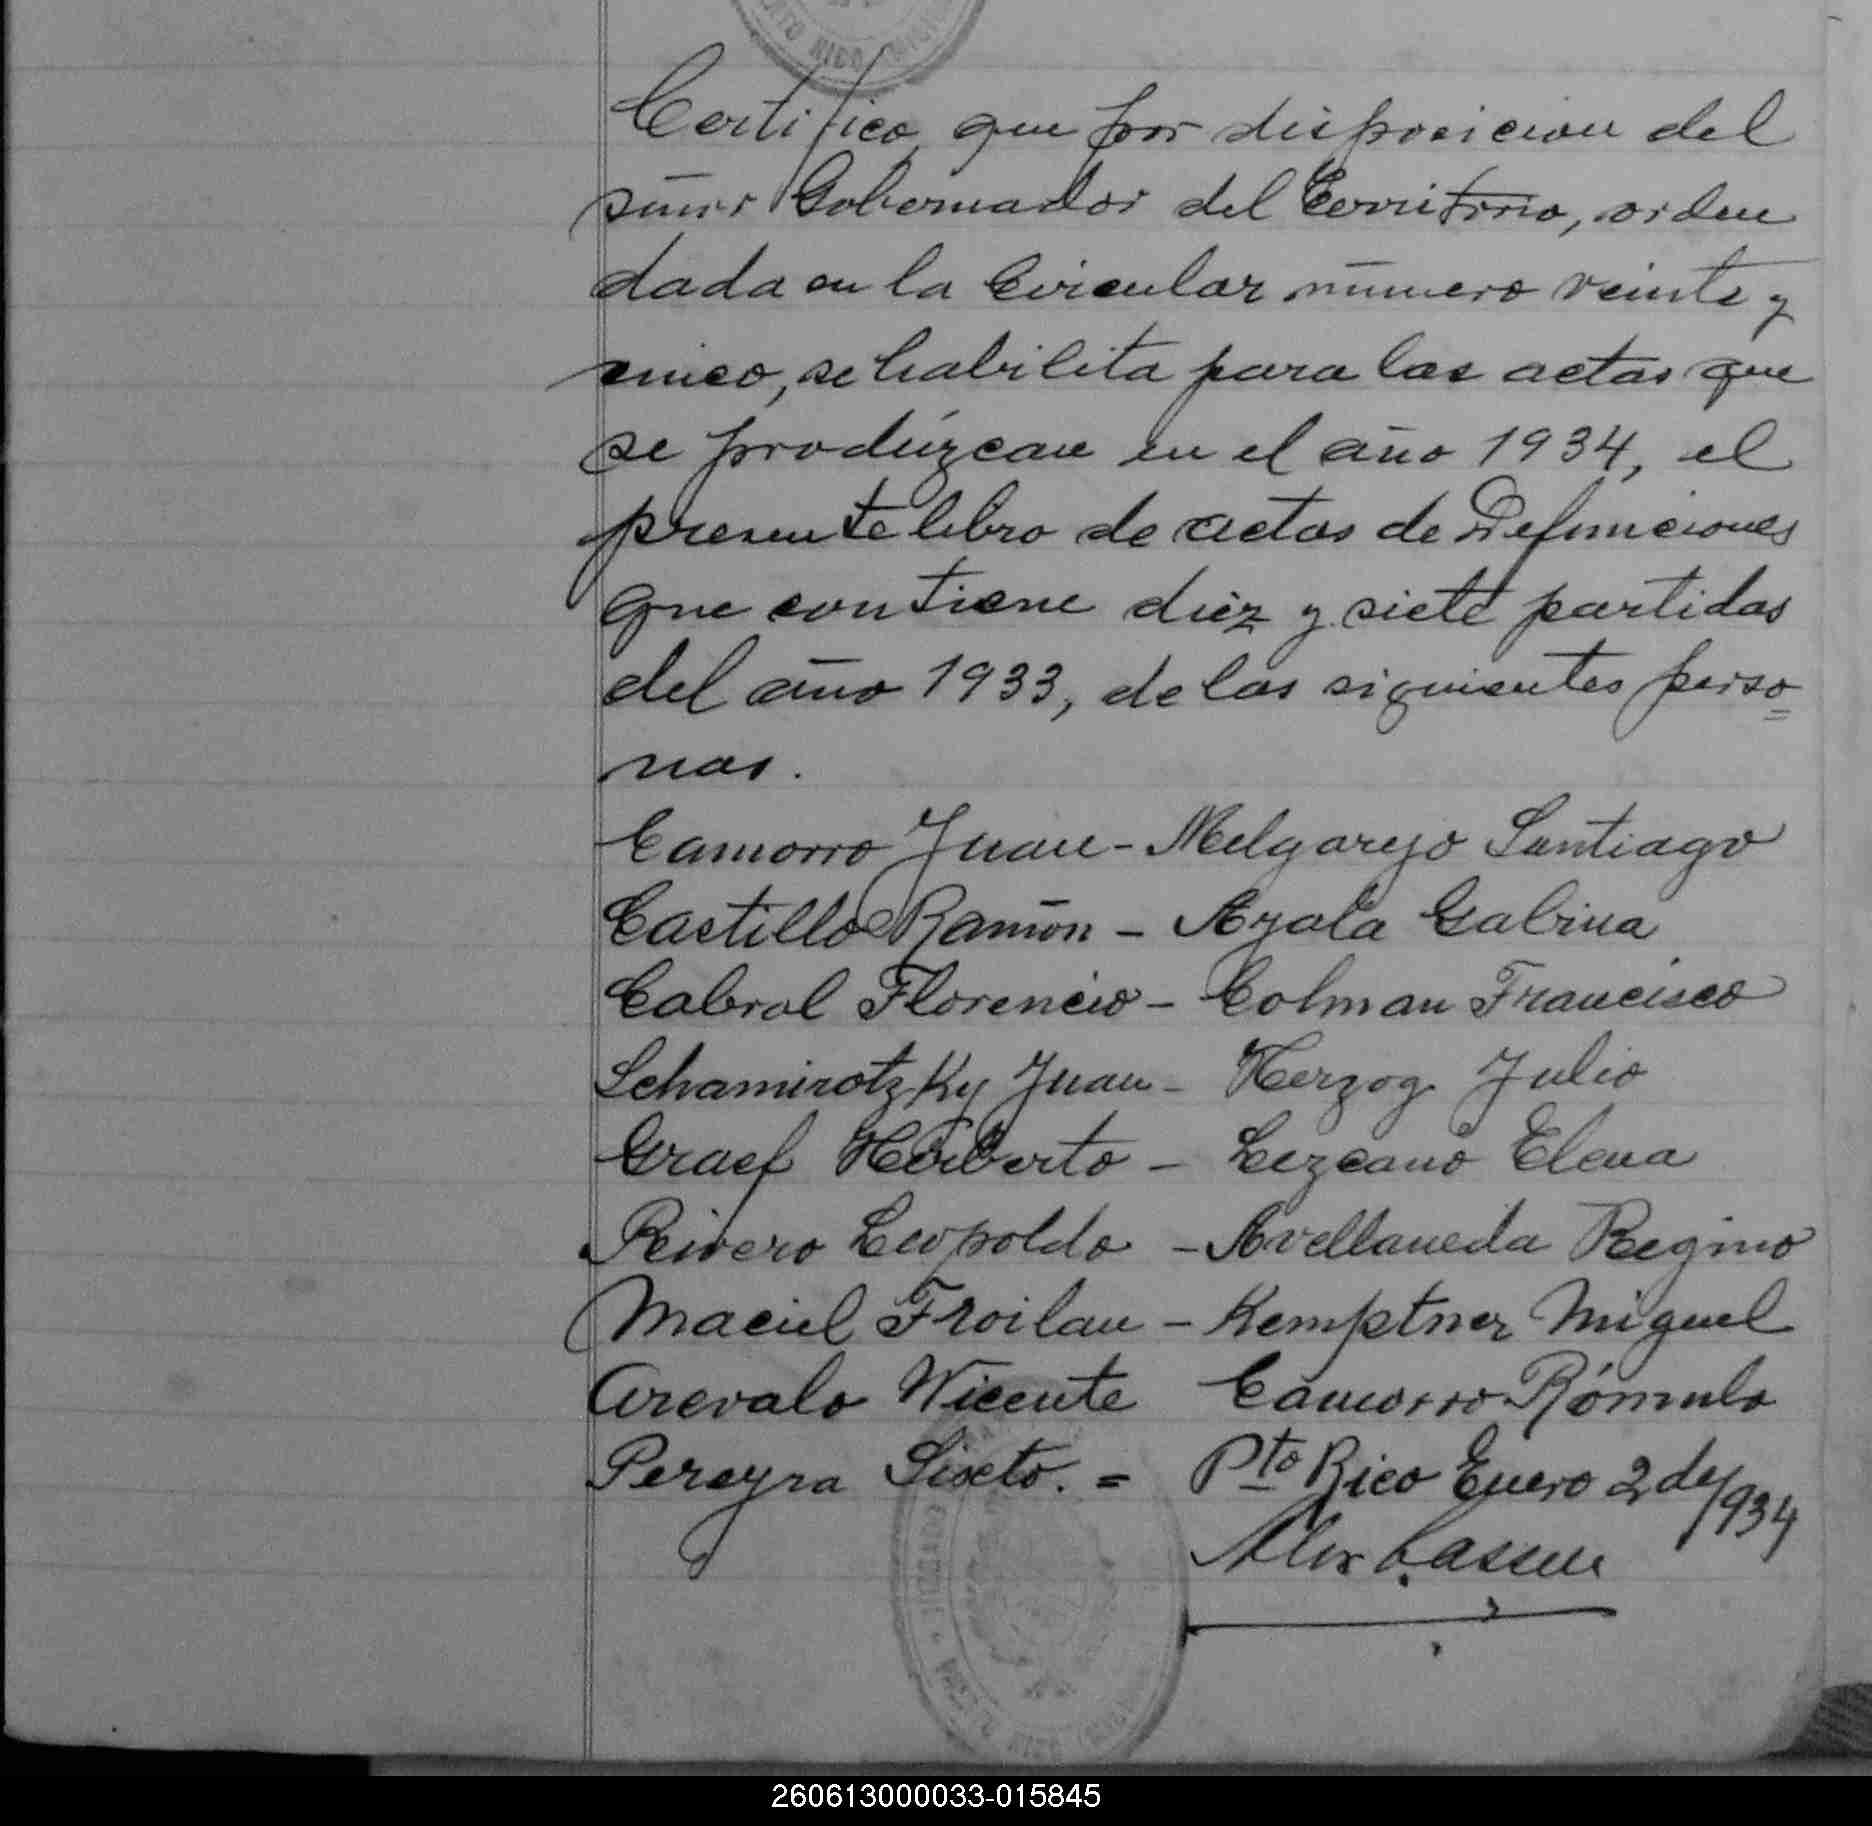 PUERTO RICO
Certifico que por disposicion del
señor Gobernador del Territorio, orden
dada en la Circular número veinte y
cinco, se habilita para las actas que
se prodúzcan en el año 1934, el
presente libro de actas de Defunciones
que contiene diéz y siete partidas
del año 1933, de las siguientes perso=
nas.
Camorro Juan - Melgarejo Santiago
Castillo Ramón - Ayala Gabina
Cabral Florencio - Colman Francisco
Schamirotzky Juan - Herzog Julio
Graef Heriberto - Lezcano Elena
Rivero Leopoldo - Avellaneda Regino
Maciel Froilan - Kemptner Miguel
Arevalo Vicente Camorro Rómulo
Pereyra Sixto. = Pto Rico Enero 2 de/934
PUERTO RICO
260613000033-015845